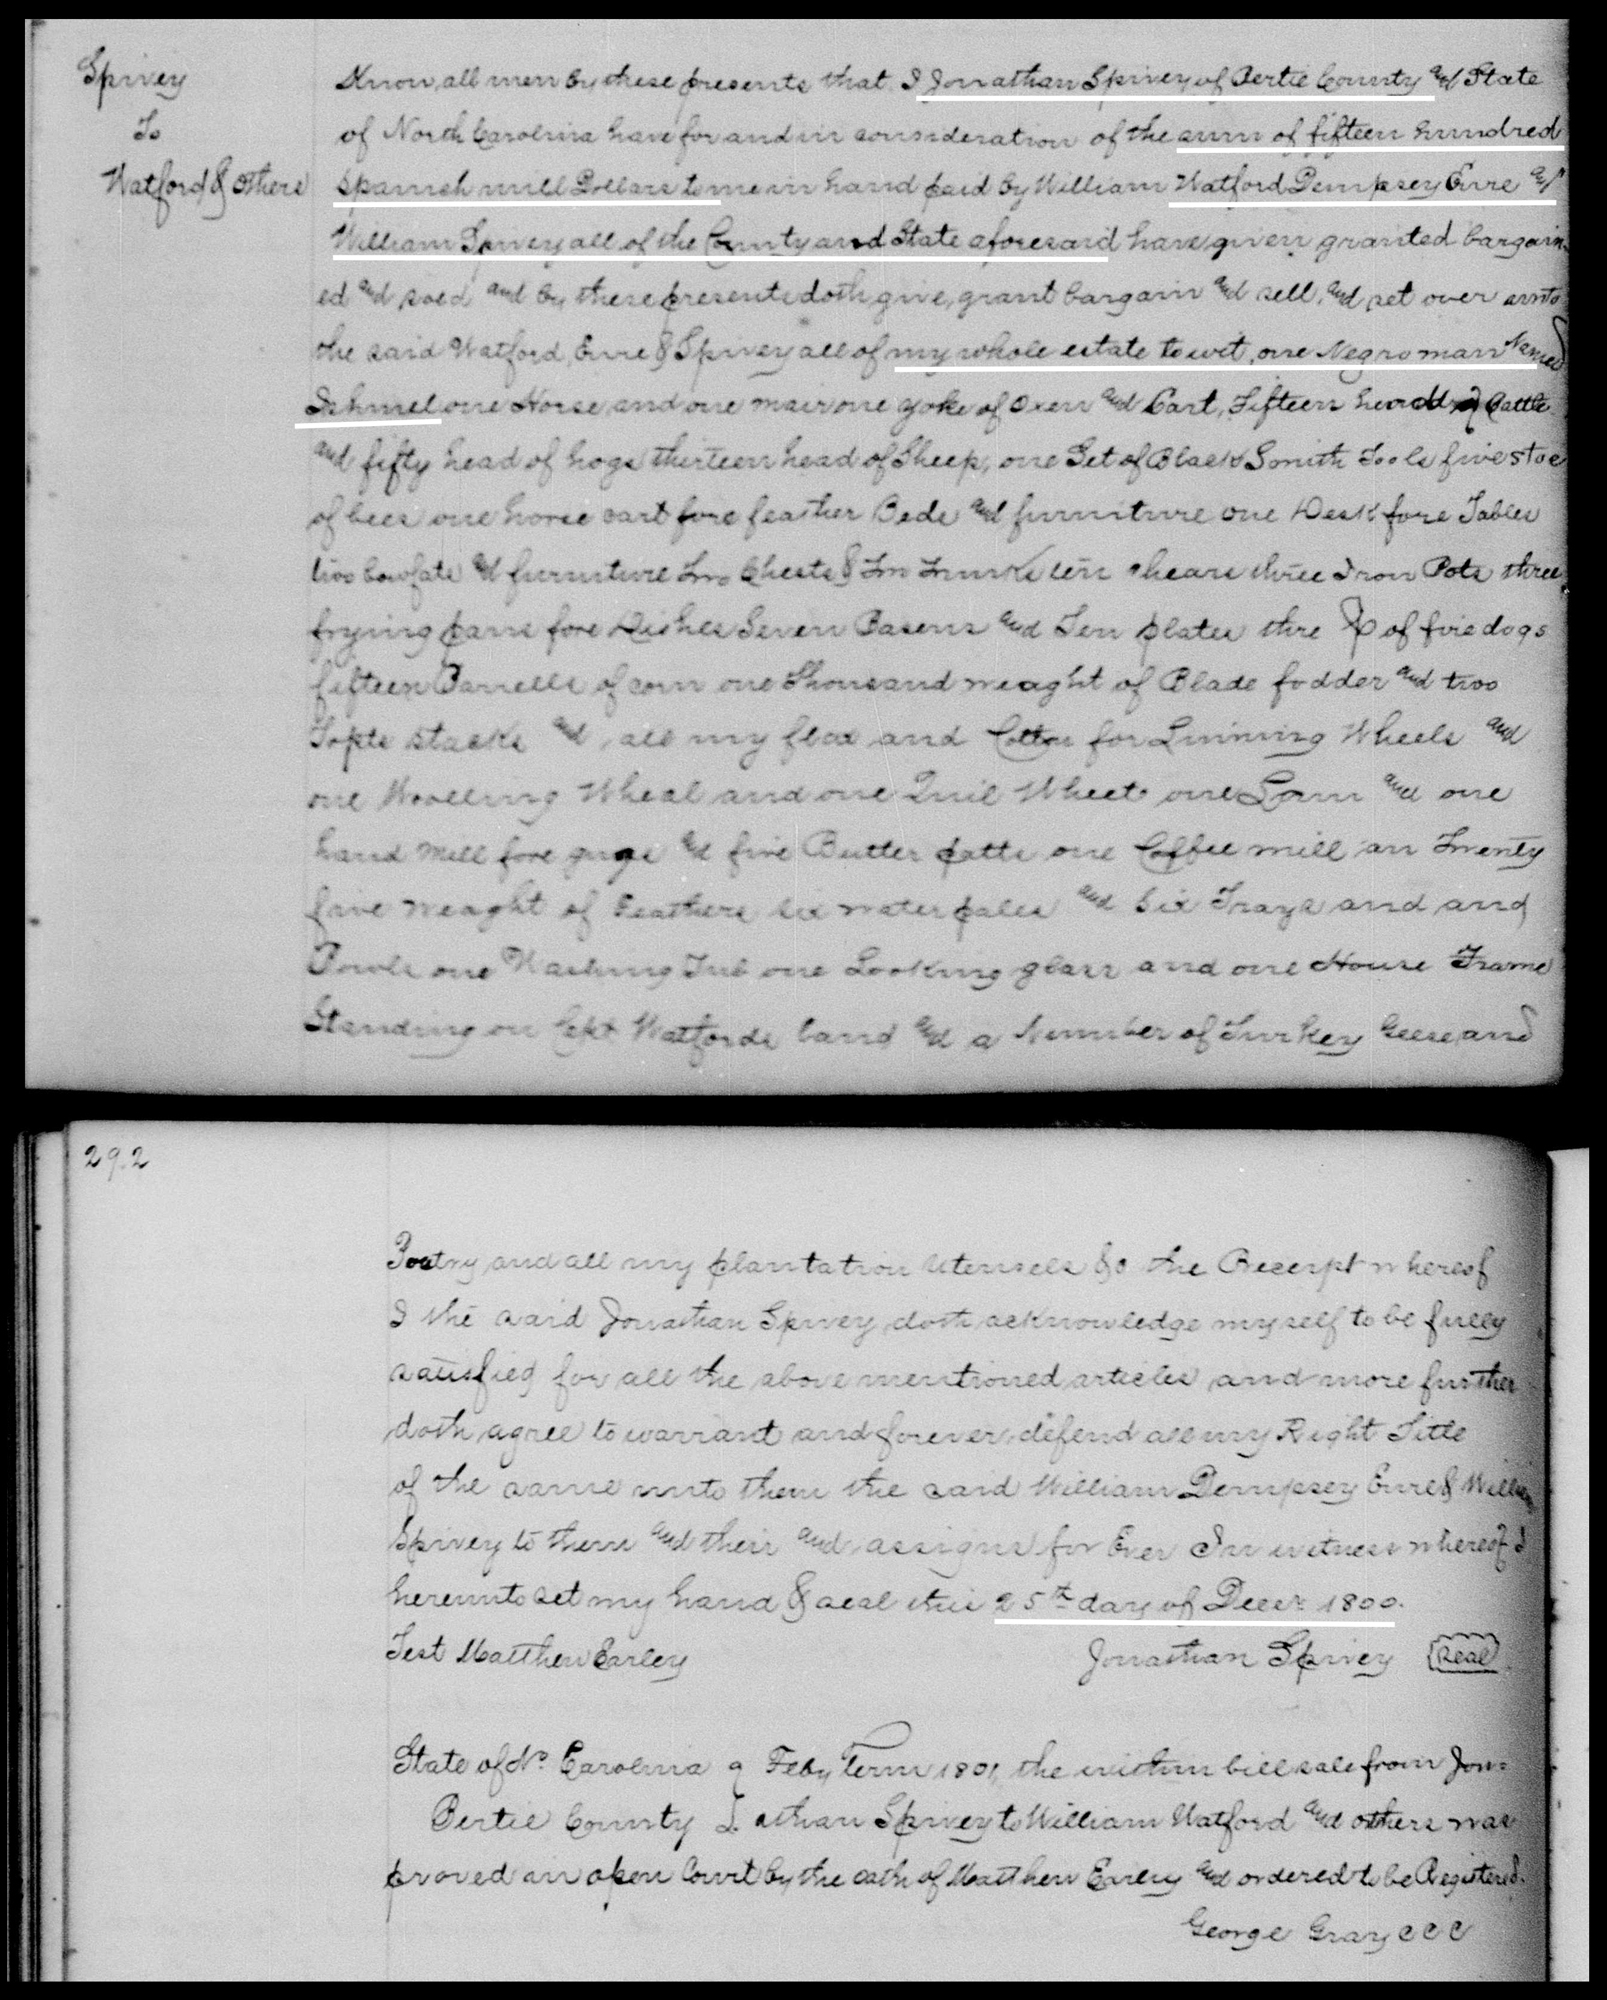 Spivey
To
Watford & others
Know all men by these presents that I Jonathan Spivey of Bertie County and State
of North Carolina have for and in consideration of the sum of fifteen hundred
Spanish mill Dollars to me in hand paid by William Watford Dempsey Eure and
William Spivey all of the County and State aforesaid have given granted bargain-
ed and sold and by these presents doth give, grant bargain and sell, and set over unto
the said Watford, Eure & Spivey all of my whole estate to wit, one Negro man Named
Ishmel one Horse and one mair one yoke of Oxen and Cart, Fifteen head of Cattle
and fifty head of hogs thirteen head of Sheep, one Set of Black Smith Tools five stoc
of bees one horse cart fore feather Beds and furniture one Desk fore Tables
two bowfats and furniture Two Chests & Tin Trunks ten chears three Iron Pots three
frying pans fore Dishes Seven Basens and Ten plates thre pr of fire dogs
fifteen Barrells of corn one Thousand weaght of Blade fodder and two
Topts stacks and all my flax and Cotton for Linining Wheels and
one Woolling Wheal and one Quil Wheel one Lom and one
hand mill fore gugs and five Butter patts one Coffee mill an Twenty
faive weaght of Feathers six water pales and Six Trays and and
Bowls one Washing Tub one Looking glass and one House Frame
Standing on Capt Watfords land and a Number of Turkey Geese and
292
Poutry and all my plantation Utensels &c the Receipt whereof
I the said Jonathan Spivey doth acknowledge myself to be fully
satisfied for all the above mentioned articles and more further
doth agree to warrant and forever defend all my Right Title
of the same unto them the said William Dempsey Eure & William
Spivey to them and their and assigns for Ever In witness whereof I
hereunto set my hand & seal this 25th day of Decer 1800.
Test Matthew Earley Jonathan Spivey Seal
State of No. Carolina Feby Term 1801, the within bill sale from Jon-
Bertie County athan Spivey to William Watford and others was
proved in open Court by the oath of Matthew Earley and ordered to be Registered.
George Gray C C C